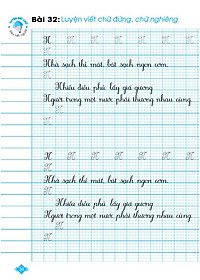 Bài 32: Luyện viết chữ đứng, chữ nghiêng
N N N N N N N
Nhà sạch thì mát, bát sạch ngon cơm.
N
Nhiễu điều phủ lấy giá gương
Người trong một nước phải thương nhau cùng.
N
N
N N N N N N N
Nhà sạch thì mát, bát sạch ngon cơm.
N
Nhiễu điều phủ lấy giá gương
Người trong một nước phải thương nhau cùng.
N
N